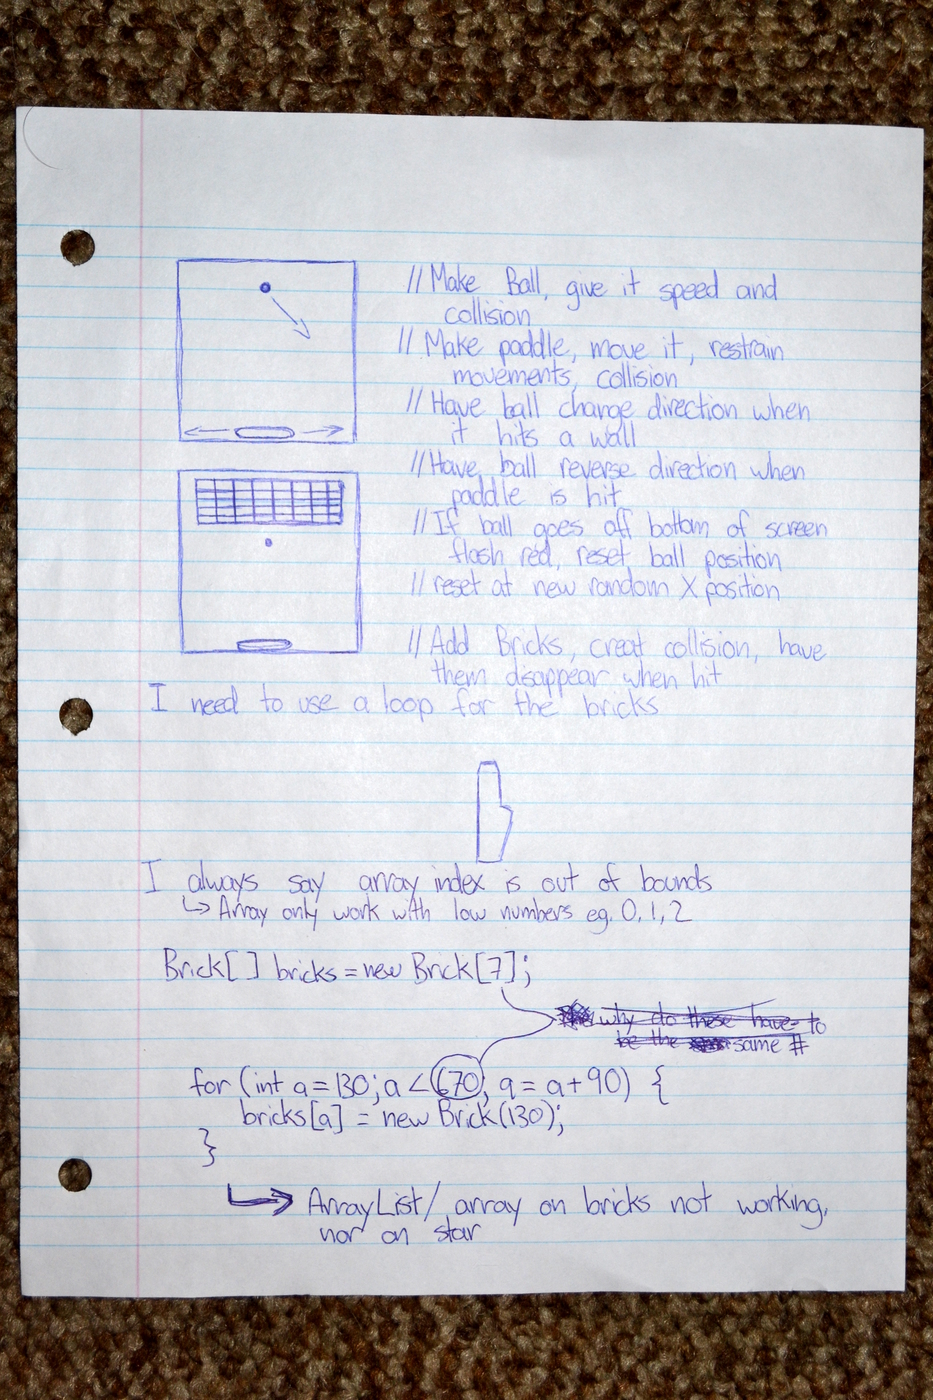 // Make Ball, give it speed and
collision
// Make paddle, move it, restrain
movements, collision
// Have ball change direction when
it hits a wall
// Have ball reverse direction when
paddle is hit
// If ball goes off bottom of screen
flash red, reset ball position
// reset at new random X position
// Add Bricks, creat collision, have
them disappear when hit
I need to use a loop for the bricks
I always say array index is out of bounds
↳ Array only work with low numbers eg. 0, 1, 2
Brick[ ] bricks = new Brick[7];
why do these have to
be the same #
for (int a = 130; a < 670; a = a + 90) {
bricks[a] = new Brick(130);
}
↳ ArrayList/ array on bricks not working,
nor on star